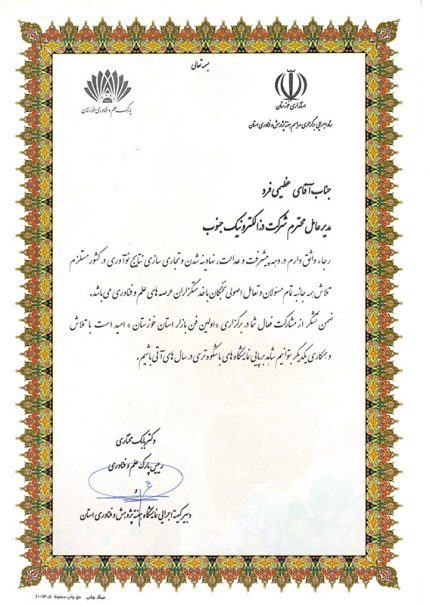 بسمه تعالی
استانداری خوزستان
پارک علم و فناوری خوزستان
ستاد اجرایی برگزاری مراسم هفته پژوهش و فناوری استان
جناب آقای عظیمی فرد
مدیرعامل محترم شرکت دز الکترونیک جنوب
رجاء واثق دارم در دهه پیشرفت و عدالت، نهادینه شدن و تجاری سازی نتایج نوآوری در کشور مستلزم
تلاش همه جانبه تمام مسئولان و تعامل اصولی نخبگان با خدمتگزاران عرصه های علم و فناوری می باشد.
ضمن تشکر از مشارکت فعال شما در برگزاری «اولین فن بازار استان خوزستان» امید است با تلاش
و همکاری یکدیگر بتوانیم شاهد برپایی نمایشگاه های باشکوه تری در سال های آتی باشیم.
دکتر بابک مختاری
رییس پارک علم و فناوری
و
دبیر کمیته اجرایی نمایشگاه هفته پژوهش و فناوری استان